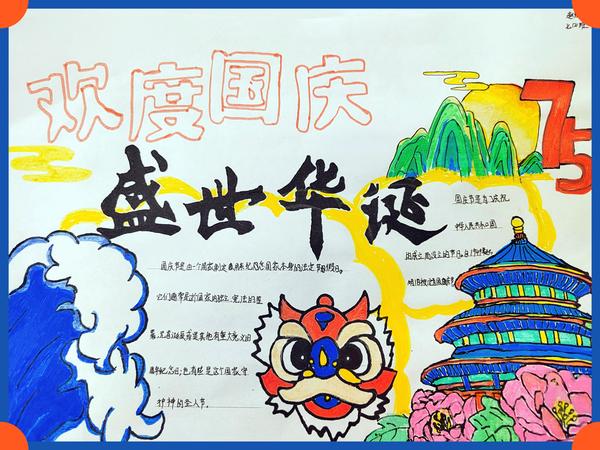 欢度国庆
75
盛世华诞
国庆节是为了庆祝
中华人民共和国
国庆节是由一个国家制定的用来纪念国家本身的法定节假日。
它们通常是这个国家的独立、宪法的签
署、元首诞辰或是其他有重大意义的
周年纪念日；也有些是这个国家守
护神的圣人节。